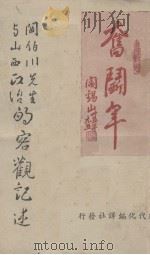 奮鬪年
閻錫山題
閻伯川先生
与山西政治的客觀記述
代化編譯社發行